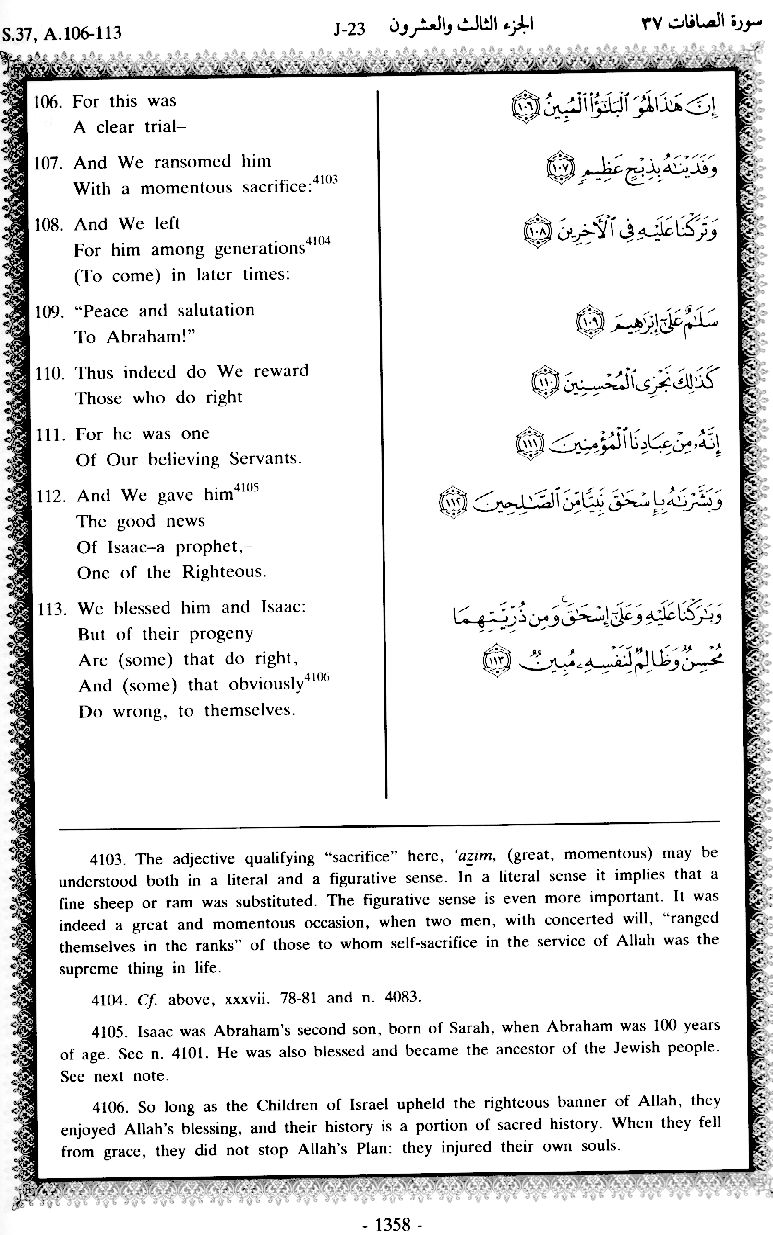 S.37, A.106-113 J-23 الجزء الثالث والعشرون سورة الصافات ٣٧
106. For this was
A clear trial–
107. And We ransomed him
With a momentous sacrifice:4103
108. And We left
For him among generations4104
(To come) in later times:
109. “Peace and salutation
To Abraham!”
110. Thus indeed do We reward
Those who do right
111. For he was one
Of Our believing Servants.
112. And We gave him4105
The good news
Of Isaac–a prophet,–
One of the Righteous.
113. We blessed him and Isaac:
But of their progeny
Are (some) that do right,
And (some) that obviously4106
Do wrong, to themselves.
إِنَّ هَٰذَا لَهُوَ ٱلْبَلَٰٓؤُا۟ ٱلْمُبِينُ ١٠٦
وَفَدَيْنَٰهُ بِذِبْحٍ عَظِيمٍ ١٠٧
وَتَرَكْنَا عَلَيْهِ فِى ٱلْءَاخِرِينَ ١٠٨
سَلَٰمٌ عَلَىٰٓ إِبْرَٰهِيمَ ١٠٩
كَذَٰلِكَ نَجْزِى ٱلْمُحْسِنِينَ ١١٠
إِنَّهُۥ مِنْ عِبَادِنَا ٱلْمُؤْمِنِينَ ١١١
وَبَشَّرْنَٰهُ بِإِسْحَٰقَ نَبِيًّا مِّنَ ٱلصَّٰلِحِينَ ١١٢
وَبَٰرَكْنَا عَلَيْهِ وَعَلَىٰٓ إِسْحَٰقَ ۚ وَمِن ذُرِّيَّتِهِمَا
مُحْسِنٌ وَظَالِمٌ لِّنَفْسِهِۦ مُبِينٌ ١١٣
4103. The adjective qualifying “sacrifice” here, ‘azim, (great, momentous) may be
understood both in a literal and a figurative sense. In a literal sense it implies that a
fine sheep or ram was substituted. The figurative sense is even more important. It was
indeed a great and momentous occasion, when two men, with concerted will, “ranged
themselves in the ranks” of those to whom self-sacrifice in the service of Allah was the
supreme thing in life.
4104. Cf. above, xxxvii. 78-81 and n. 4083.
4105. Isaac was Abraham’s second son, born of Sarah, when Abraham was 100 years
of age. See n. 4101. He was also blessed and became the ancestor of the Jewish people.
See next note.
4106. So long as the Children of Israel upheld the righteous banner of Allah, they
enjoyed Allah’s blessing, and their history is a portion of sacred history. When they fell
from grace, they did not stop Allah’s Plan: they injured their own souls.
- 1358 -